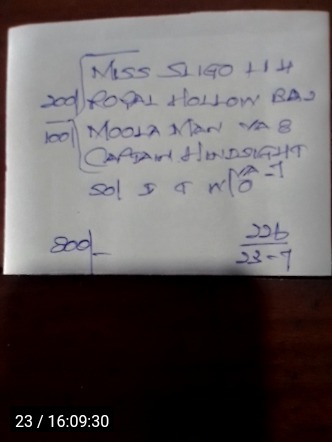 MISS SLIGO
200/ ROYAL HOLLOW BAJ
100/ MOOLA MAN VA 8
CAPTAIN HINDSIGHT
VA-7
50/ I & W/O
800/- 226
23-7
23 / 16:09:30